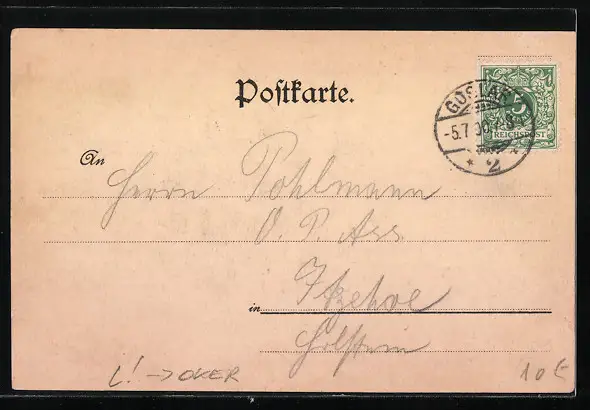 Postkarte.
5
REICHSPOST
GOSLAR
-5.7.00.7-8
* 2
An
Herrn Pohlmann
O. P. Ass.
in Itzehoe
Holstein
L! → OKER
10 €